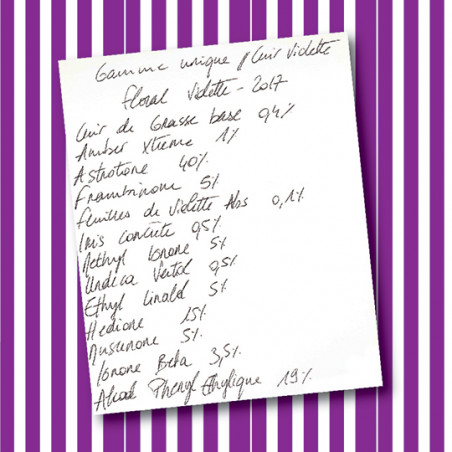 Gamme unique // Cuir Violette
Floral Violette - 2017
Cuir de Grasse base 0,4%
Amber Xtreme 1%
Astrotone 40%
Frambinone 5%
feuilles de Violette Abs 0,1%
Iris Concrète 0,5%
Methyl Ionone 5%
Undeca Vertol 0,5%
Ethyl Linalol 5%
Hedione 15%
Muscenone 5%
Ionone Beta 3,5%
Alcool Phenyl Ethylique 19%